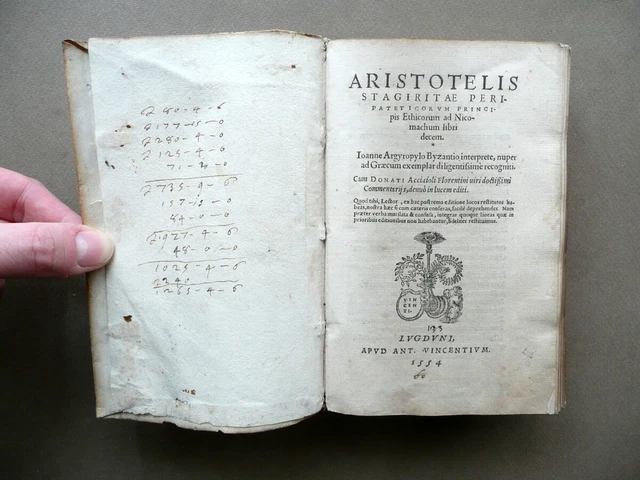 2735-9-6
157-15-0
84-0-0
2927-4-6
48-0-0
1025-4-6
240
1265-4-6
ARISTOTELIS
STAGIRITAE PERI-
PATETICORVM PRINCI-
pis Ethicorum ad Nico-
machum libri
decem.
Ioanne Argyropylo Byzantio interprete, nuper
ad Græcum exemplar diligentissimè recogniti.
Cum DONATI Acciaioli Florentini viri doctissimi
Commentarijs, denuò in lucem editi.
Quod tibi, Lector, ex hac postrema editione locos restitutos ha-
beas, nostra hæc si cum cæteris conferas, facilè deprehendes. Nam
præter verba mutilata & confusa, integras quoque lineas quæ in
prioribus editionibus non habebantur, fideliter restituimus.
VIN
CEN
TI.
LVGDVNI,
APVD ANT. VINCENTIVM.
1554